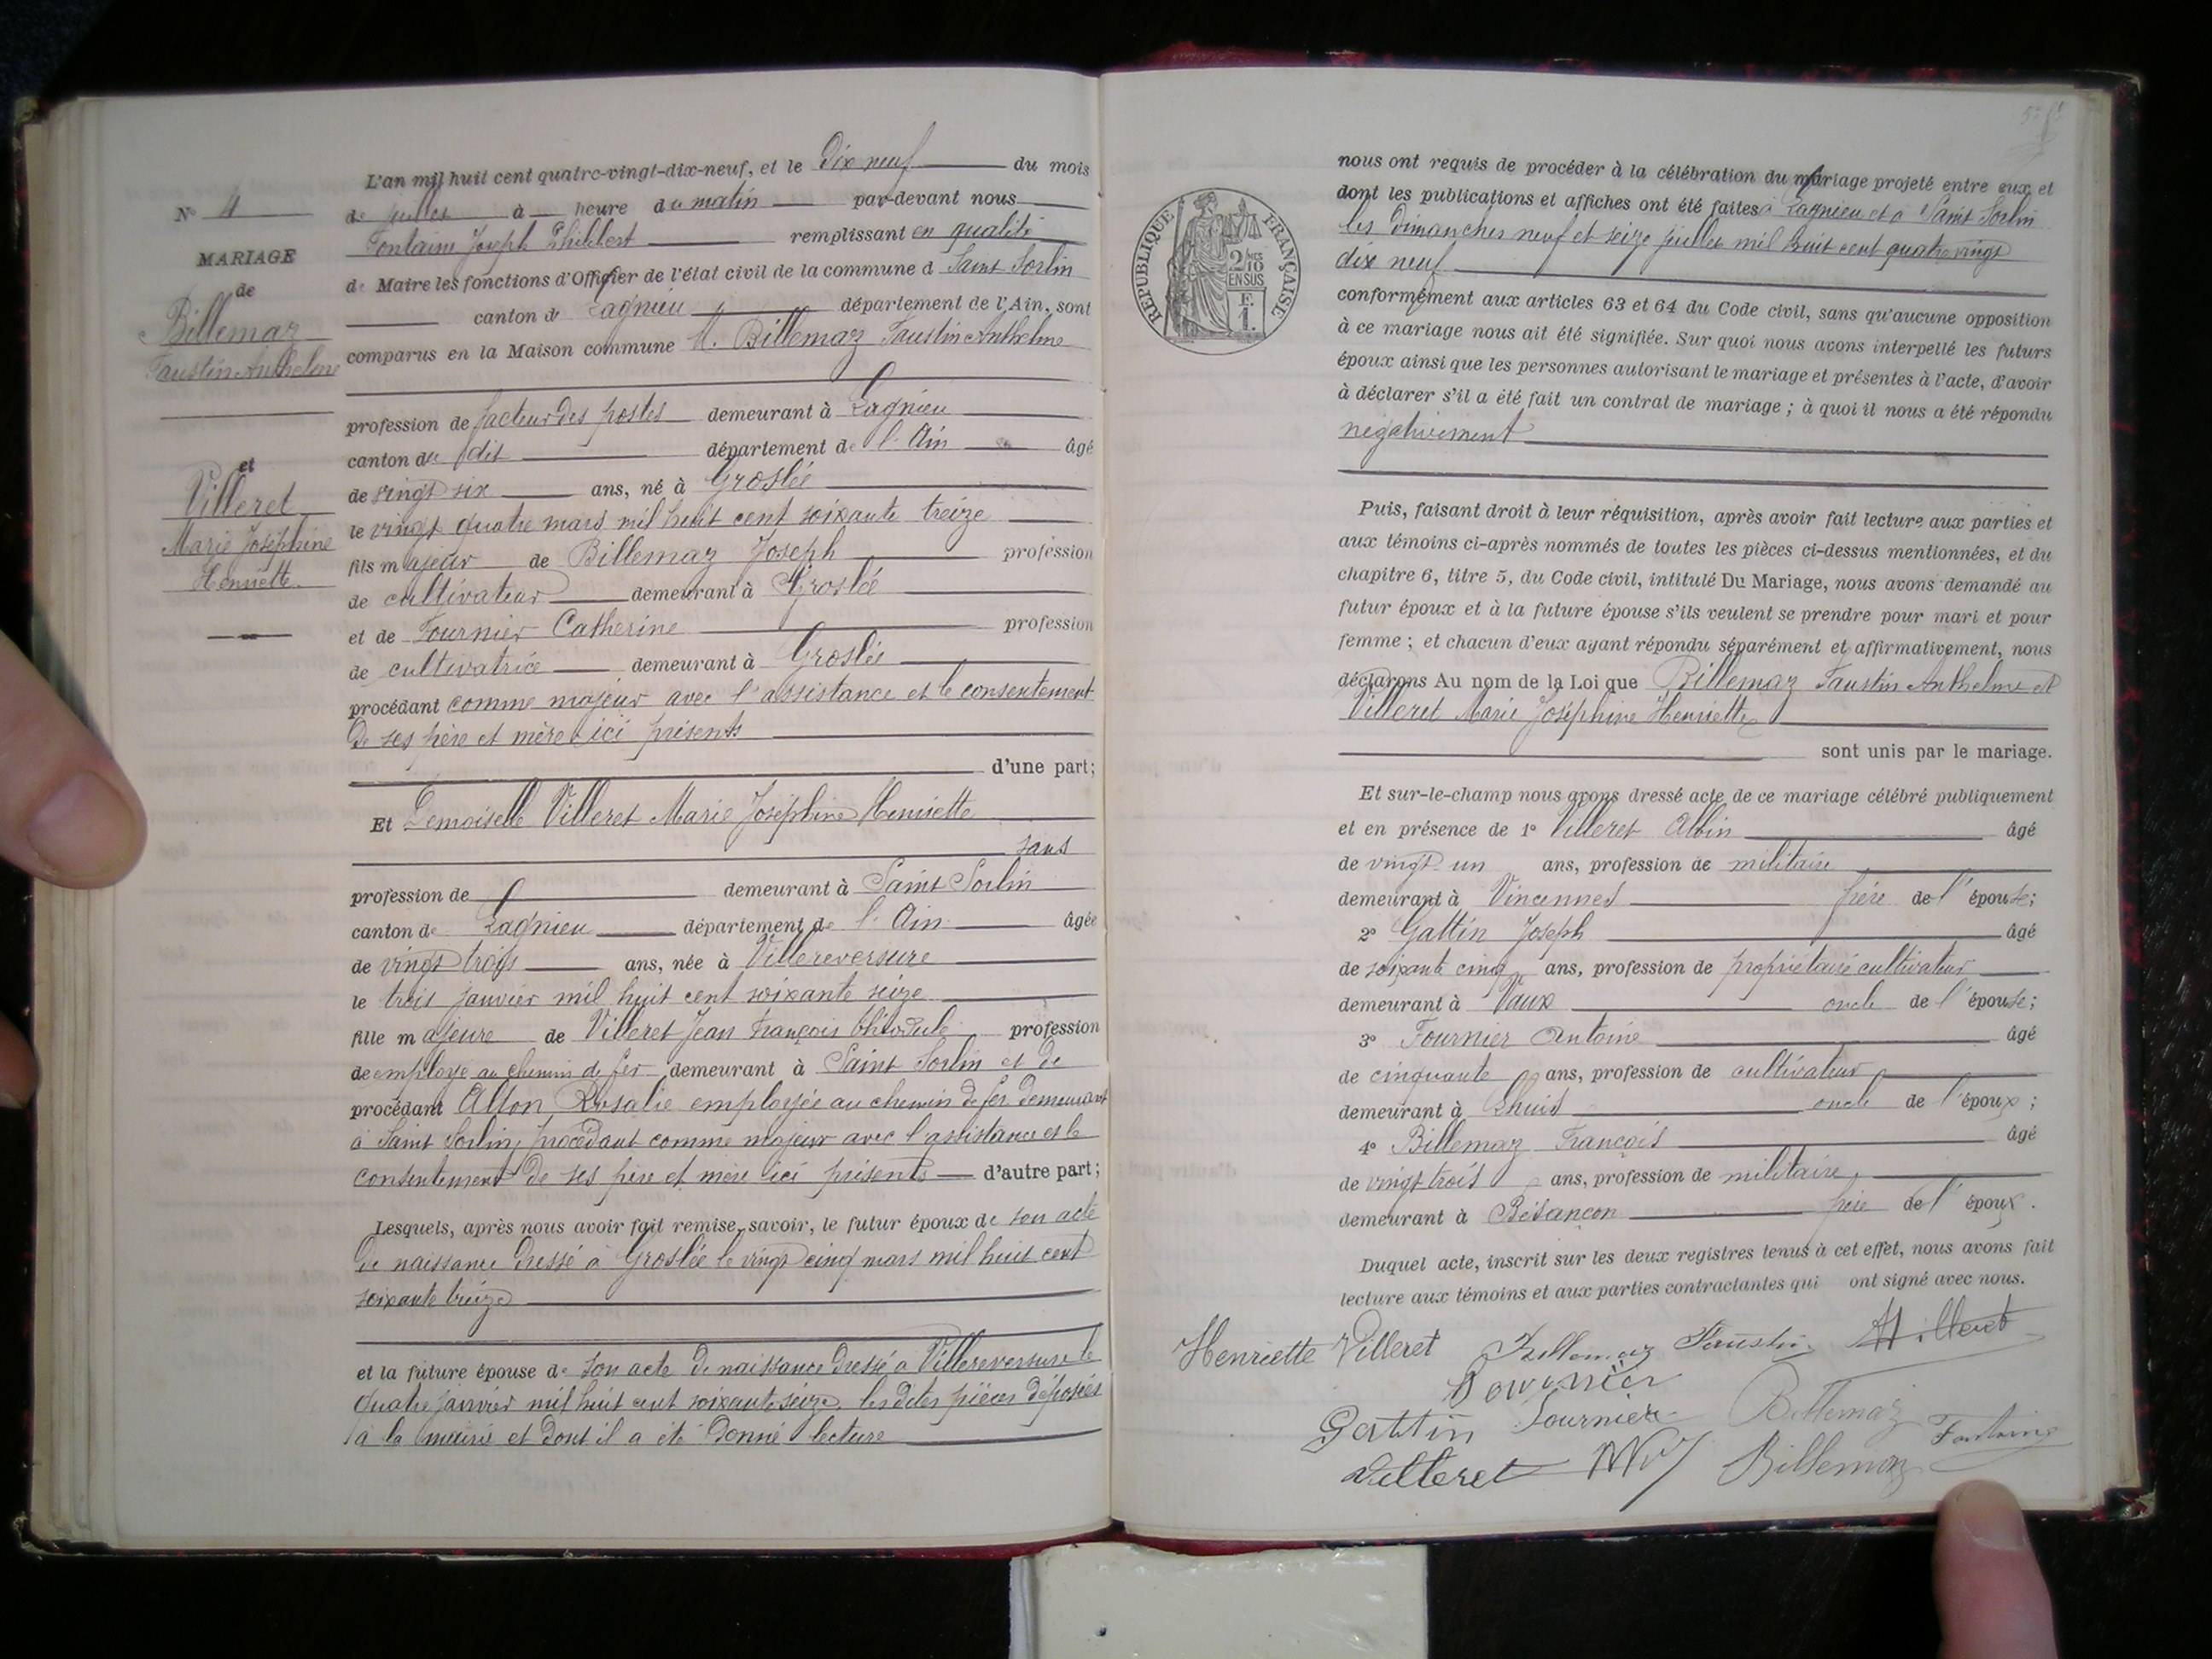 N° 4
MARIAGE
de
Billemaz
Faustin Anthelme
et
Villeret
Marie Joséphine
Henriette
L'an mil huit cent quatre-vingt-dix-neuf, et le dix neuf du mois
de juillet à heure du matin par-devant nous
Fontaine Joseph Philibert remplissant en qualité
de Maire les fonctions d'Officier de l'état civil de la commune d Saint Sorlin
canton de Lagnieu département de l'Ain, sont
comparus en la Maison commune M. Billemaz Faustin Anthelme
profession de facteur des postes demeurant à Lagnieu
canton du dit département de l'Ain âgé
de vingt six ans, né à Groslée
le vingt quatre mars mil huit cent soixante treize
fils majeur de Billemaz Joseph profession
de cultivateur demeurant à Groslée
et de Fournier Catherine profession
de cultivatrice demeurant à Groslée
procédant comme majeur avec l'assistance et le consentement
de ses père et mère ici présents
d'une part;
Et Demoiselle Villeret Marie Joséphine Henriette
sans
profession de demeurant à Saint Sorlin
canton de Lagnieu département de l'Ain âgée
de vingt trois ans, née à Villereversure
le trois janvier mil huit cent soixante seize
fille majeure de Villeret Jean François profession
de employé au chemin de fer demeurant à Saint Sorlin et de
procédant Allon Rosalie employée au chemin de fer demeurant
à Saint Sorlin, procédant comme majeur avec l'assistance et le
consentement de ses père et mère ici présents d'autre part;
Lesquels, après nous avoir fait remise, savoir, le futur époux de son acte
de naissance dressé à Groslée le vingt cinq mars mil huit cent
soixante treize
et la future épouse de son acte de naissance dressé à Villereversure le
quatre janvier mil huit cent soixante seize. les dites pièces déposées
à la mairie et dont il a été donné lecture
REPUBLIQUE FRANÇAISE
2/10
EN SUS
F.
1.
nous ont requis de procéder à la célébration du mariage projeté entre eux et
dont les publications et affiches ont été faites à Lagnieu et à Saint Sorlin
les dimanches neuf et seize juillet mil huit cent quatre vingt
dix neuf
conformément aux articles 63 et 64 du Code civil, sans qu'aucune opposition
à ce mariage nous ait été signifiée. Sur quoi nous avons interpellé les futurs
époux ainsi que les personnes autorisant le mariage et présentes à l'acte, d'avoir
à déclarer s'il a été fait un contrat de mariage; à quoi il nous a été répondu
négativement
Puis, faisant droit à leur réquisition, après avoir fait lecture aux parties et
aux témoins ci-après nommés de toutes les pièces ci-dessus mentionnées, et du
chapitre 6, titre 5, du Code civil, intitulé Du Mariage, nous avons demandé au
futur époux et à la future épouse s'ils veulent se prendre pour mari et pour
femme; et chacun d'eux ayant répondu séparément et affirmativement, nous
déclarons Au nom de la Loi que Billemaz Faustin Anthelme et
Villeret Marie Joséphine Henriette
sont unis par le mariage.
Et sur-le-champ nous avons dressé acte de ce mariage célébré publiquement
et en présence de 1° Villeret Albin âgé
de vingt un ans, profession de militaire
demeurant à Vincennes frère de l'épouse;
2° Gattin Joseph âgé
de soixante cinq ans, profession de propriétaire cultivateur
demeurant à Vaux oncle de l'épouse;
3° Fournier Antoine âgé
de cinquante ans, profession de cultivateur
demeurant à Lhuis oncle de l'époux;
4° Billemaz François âgé
de vingt trois ans, profession de militaire
demeurant à Bésançon frère de l'époux.
Duquel acte, inscrit sur les deux registres tenus à cet effet, nous avons fait
lecture aux témoins et aux parties contractantes qui ont signé avec nous.
Henriette Villeret Billemaz Faustin A Villeret
Gattin Fournier Billemaz Fontaine
Villeret Billemaz